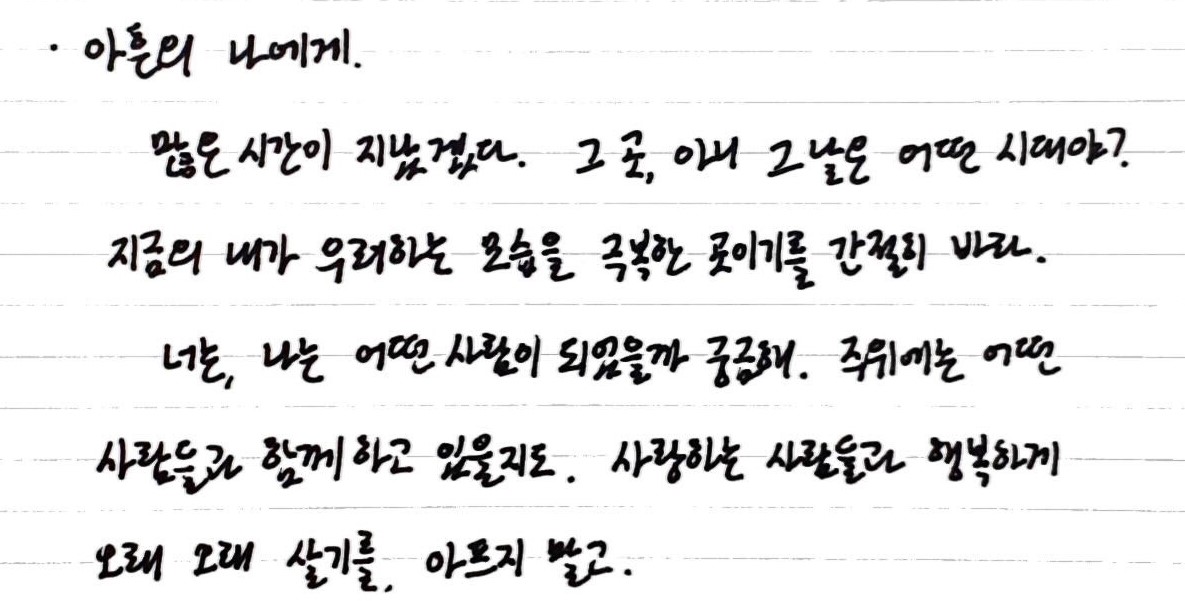 · 아흔의 나에게.
많은 시간이 지났겠다. 그 곳, 아니 그 날은 어떤 시대야?
지금의 내가 우려하는 모습을 극복한 곳이기를 간절히 바라.
너는, 나는 어떤 사람이 되었을까 궁금해. 주위에는 어떤
사람들과 함께 하고 있을지도. 사랑하는 사람들과 행복하게
오래 오래 살기를. 아프지 말고.